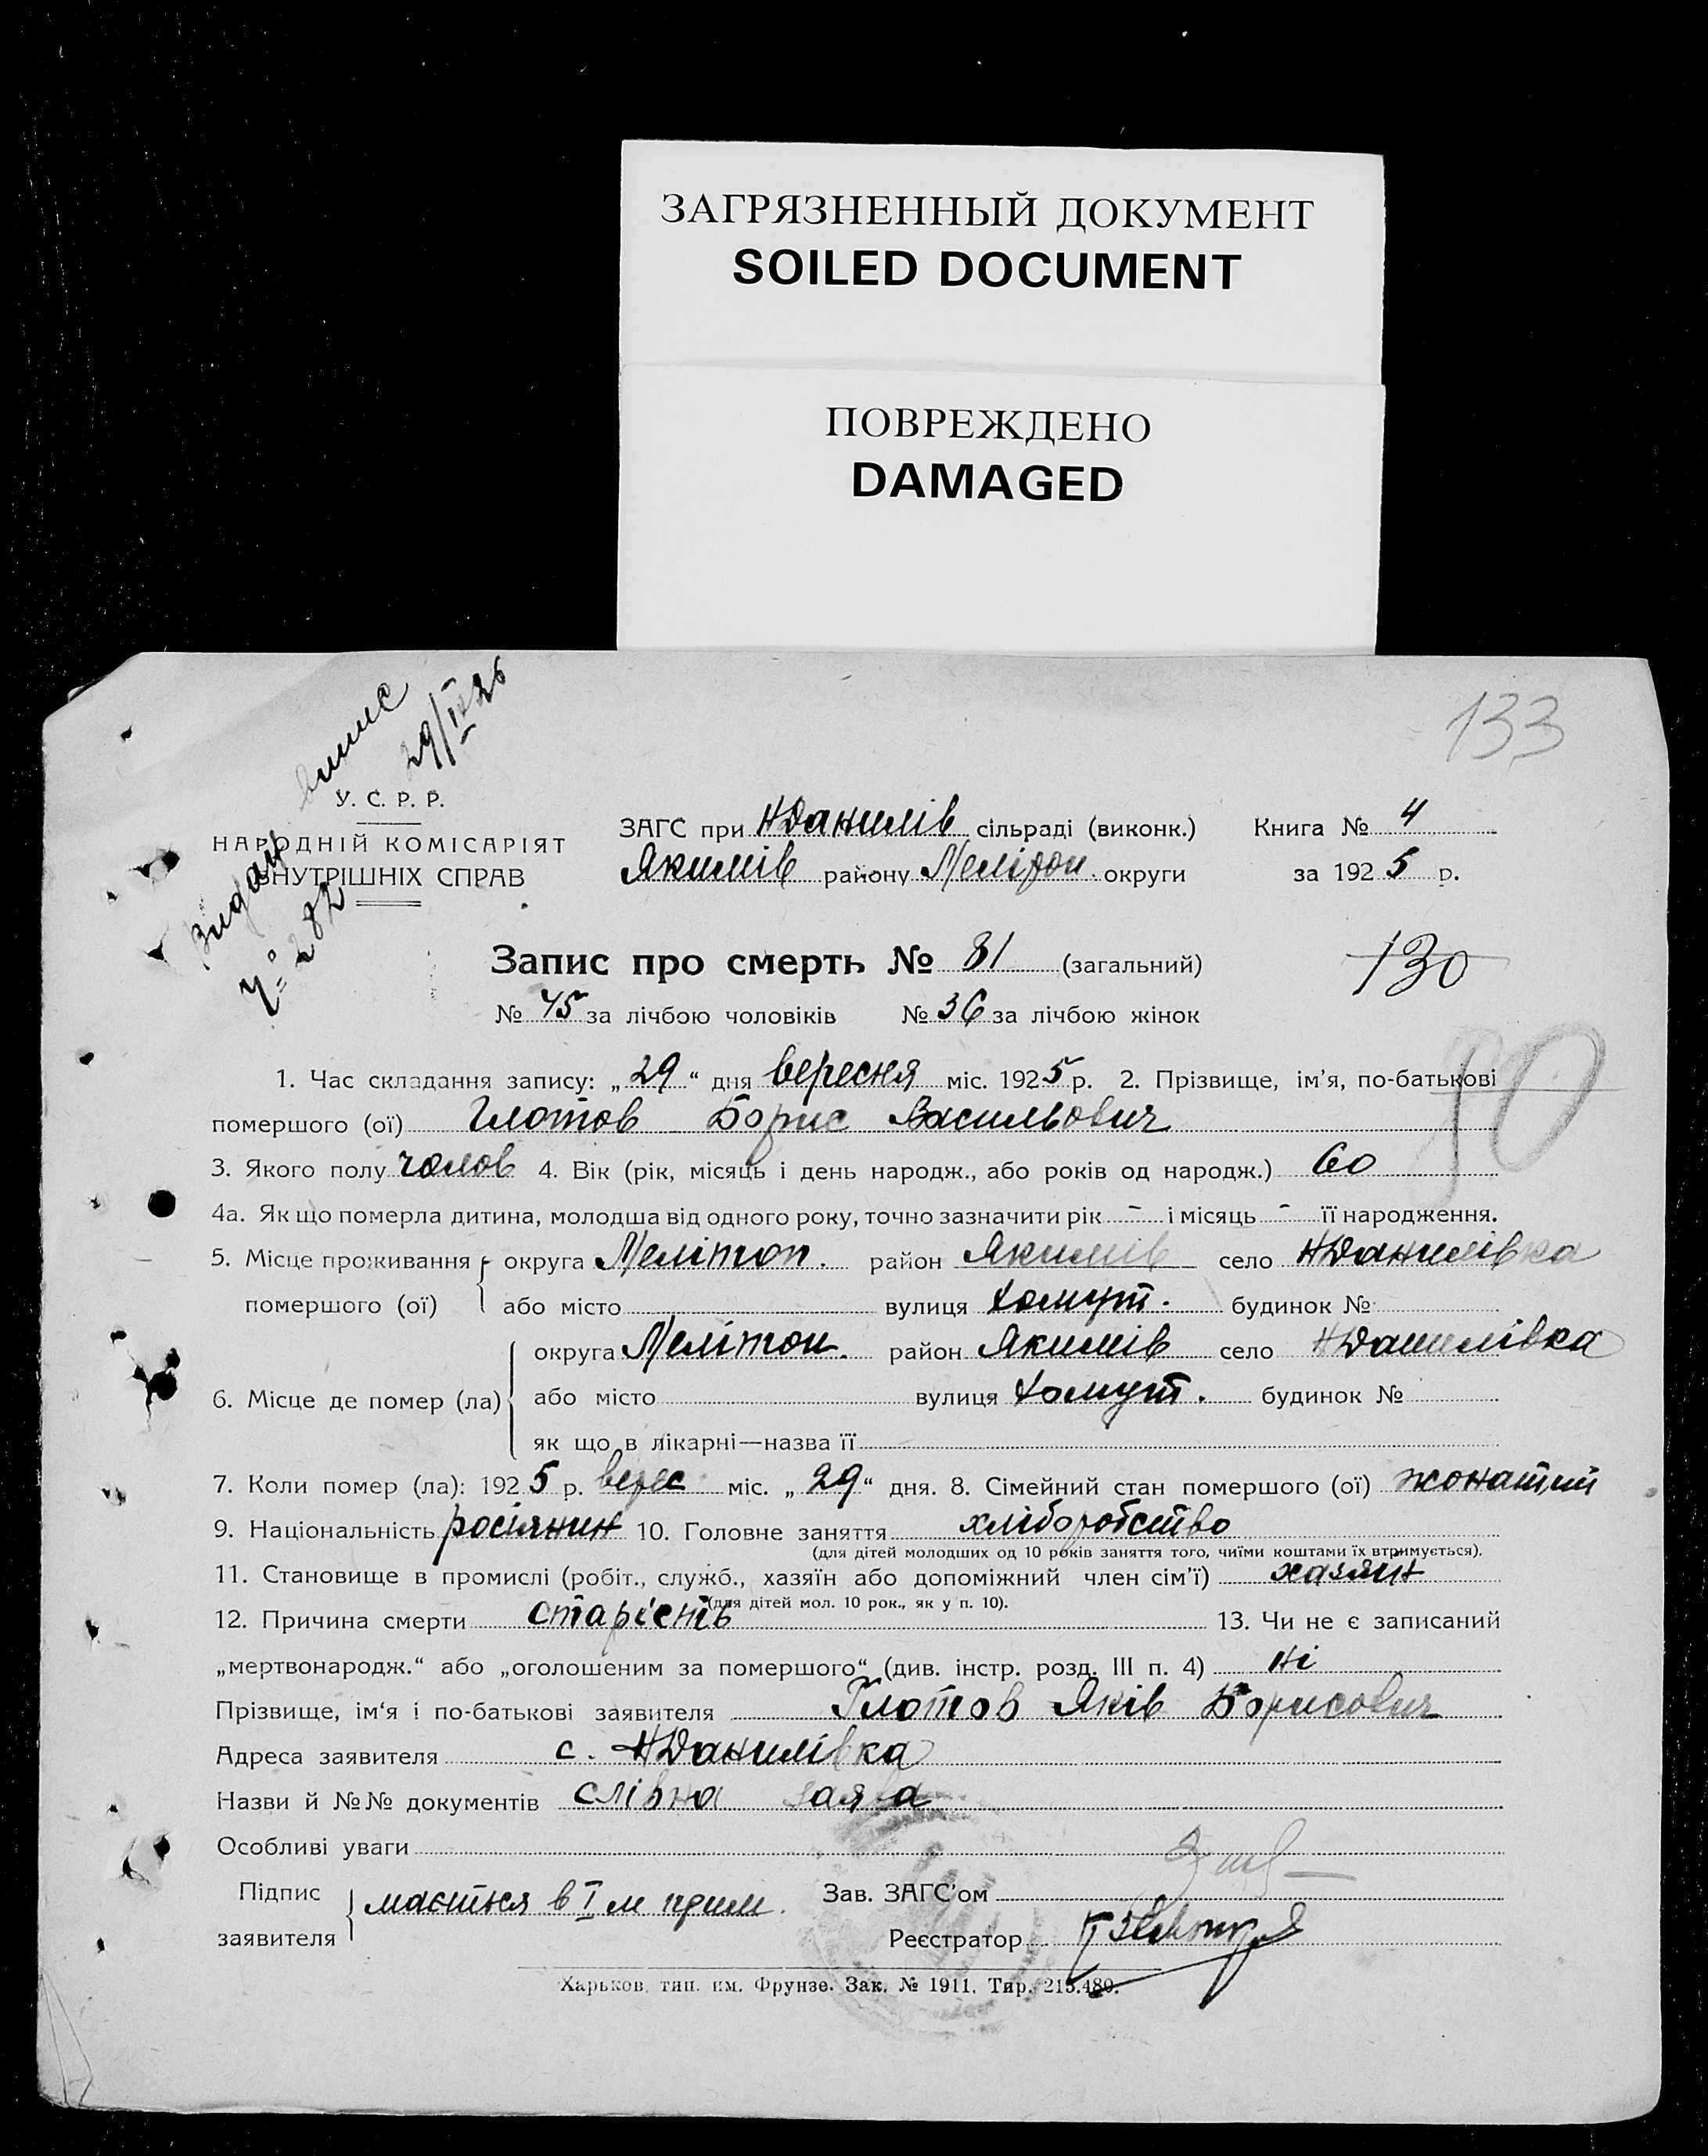 ЗАГРЯЗНЕННЫЙ ДОКУМЕНТ
SOILED DOCUMENT
ПОВРЕЖДЕНО
DAMAGED
133
Видан випис
№ 282 29/IX 25
У. С. Р. Р.
НАРОДНІЙ КОМІСАРІЯТ
ВНУТРІШНІХ СПРАВ
ЗАГС при НДанилів сільраді (виконк.) Книга № 4
Якимів району Меліτοп. округи за 1925 р.
Запис про смерть № 81 (загальний)
130
№ 45 за лічбою чоловіків № 36 за лічбою жінок
90
1. Час складання запису: „29“ дня вересня міс. 1925 р. 2. Прізвище, ім’я, по-батькові
помершого (ої) Глотов Борис Васильович
3. Якого полу чолов 4. Вік (рік, місяць і день народж., або років од народж.) 60
4а. Як що померла дитина, молодша від одного року, точно зазначити рік - і місяць - її народження.
5. Місце проживання округа Мелітоп. район Якимів село НДанилівка
помершого (ої) або місто вулиця Хомут. будинок №
округа Мелітоп. район Якимів село НДанилівка
6. Місце де помер (ла) або місто вулиця Хомут. будинок №
як що в лікарні—назва її
7. Коли помер (ла): 1925 р. верес міс. „29“ дня. 8. Сімейний стан помершого (ої) жонатий
9. Національність росіянин 10. Головне заняття хліборобство
(для дітей молодших од 10 років заняття того, чиїми коштами їх втримується).
11. Становище в промислі (робіт., служб., хазяїн або допоміжний член сім’ї) хазяїн
(для дітей мол. 10 рок., як у п. 10).
12. Причина смерти старість 13. Чи не є записаний
„мертвонародж.“ або „оголошеним за помершого“ (див. інстр. розд. III п. 4) ні
Прізвище, ім‘я і по-батькові заявителя Глотов Яків Борисович
Адреса заявителя с. НДанилівка
Назви й №№ документів слівна заява
Особливі уваги
Підпис заявителя мається в I м прим.
Зав. ЗАГС’ом
Реєстратор
Харьков, тип. им. Фрунзе. Зак. № 1911. Тир. 215.480.